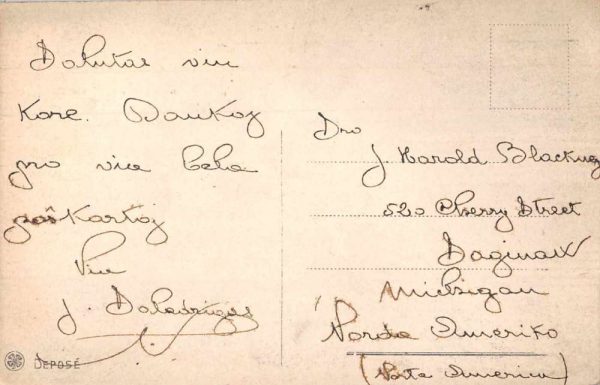 Salutas vin
Kore. Dankoj
pro viaj bela
poŝkartoj
Via
J.
DEPOSÉ
Sro
J. Harold Blackney
520 Cherry Street
Saginaw
Michigan
Norda Ameriko
(Norte America)